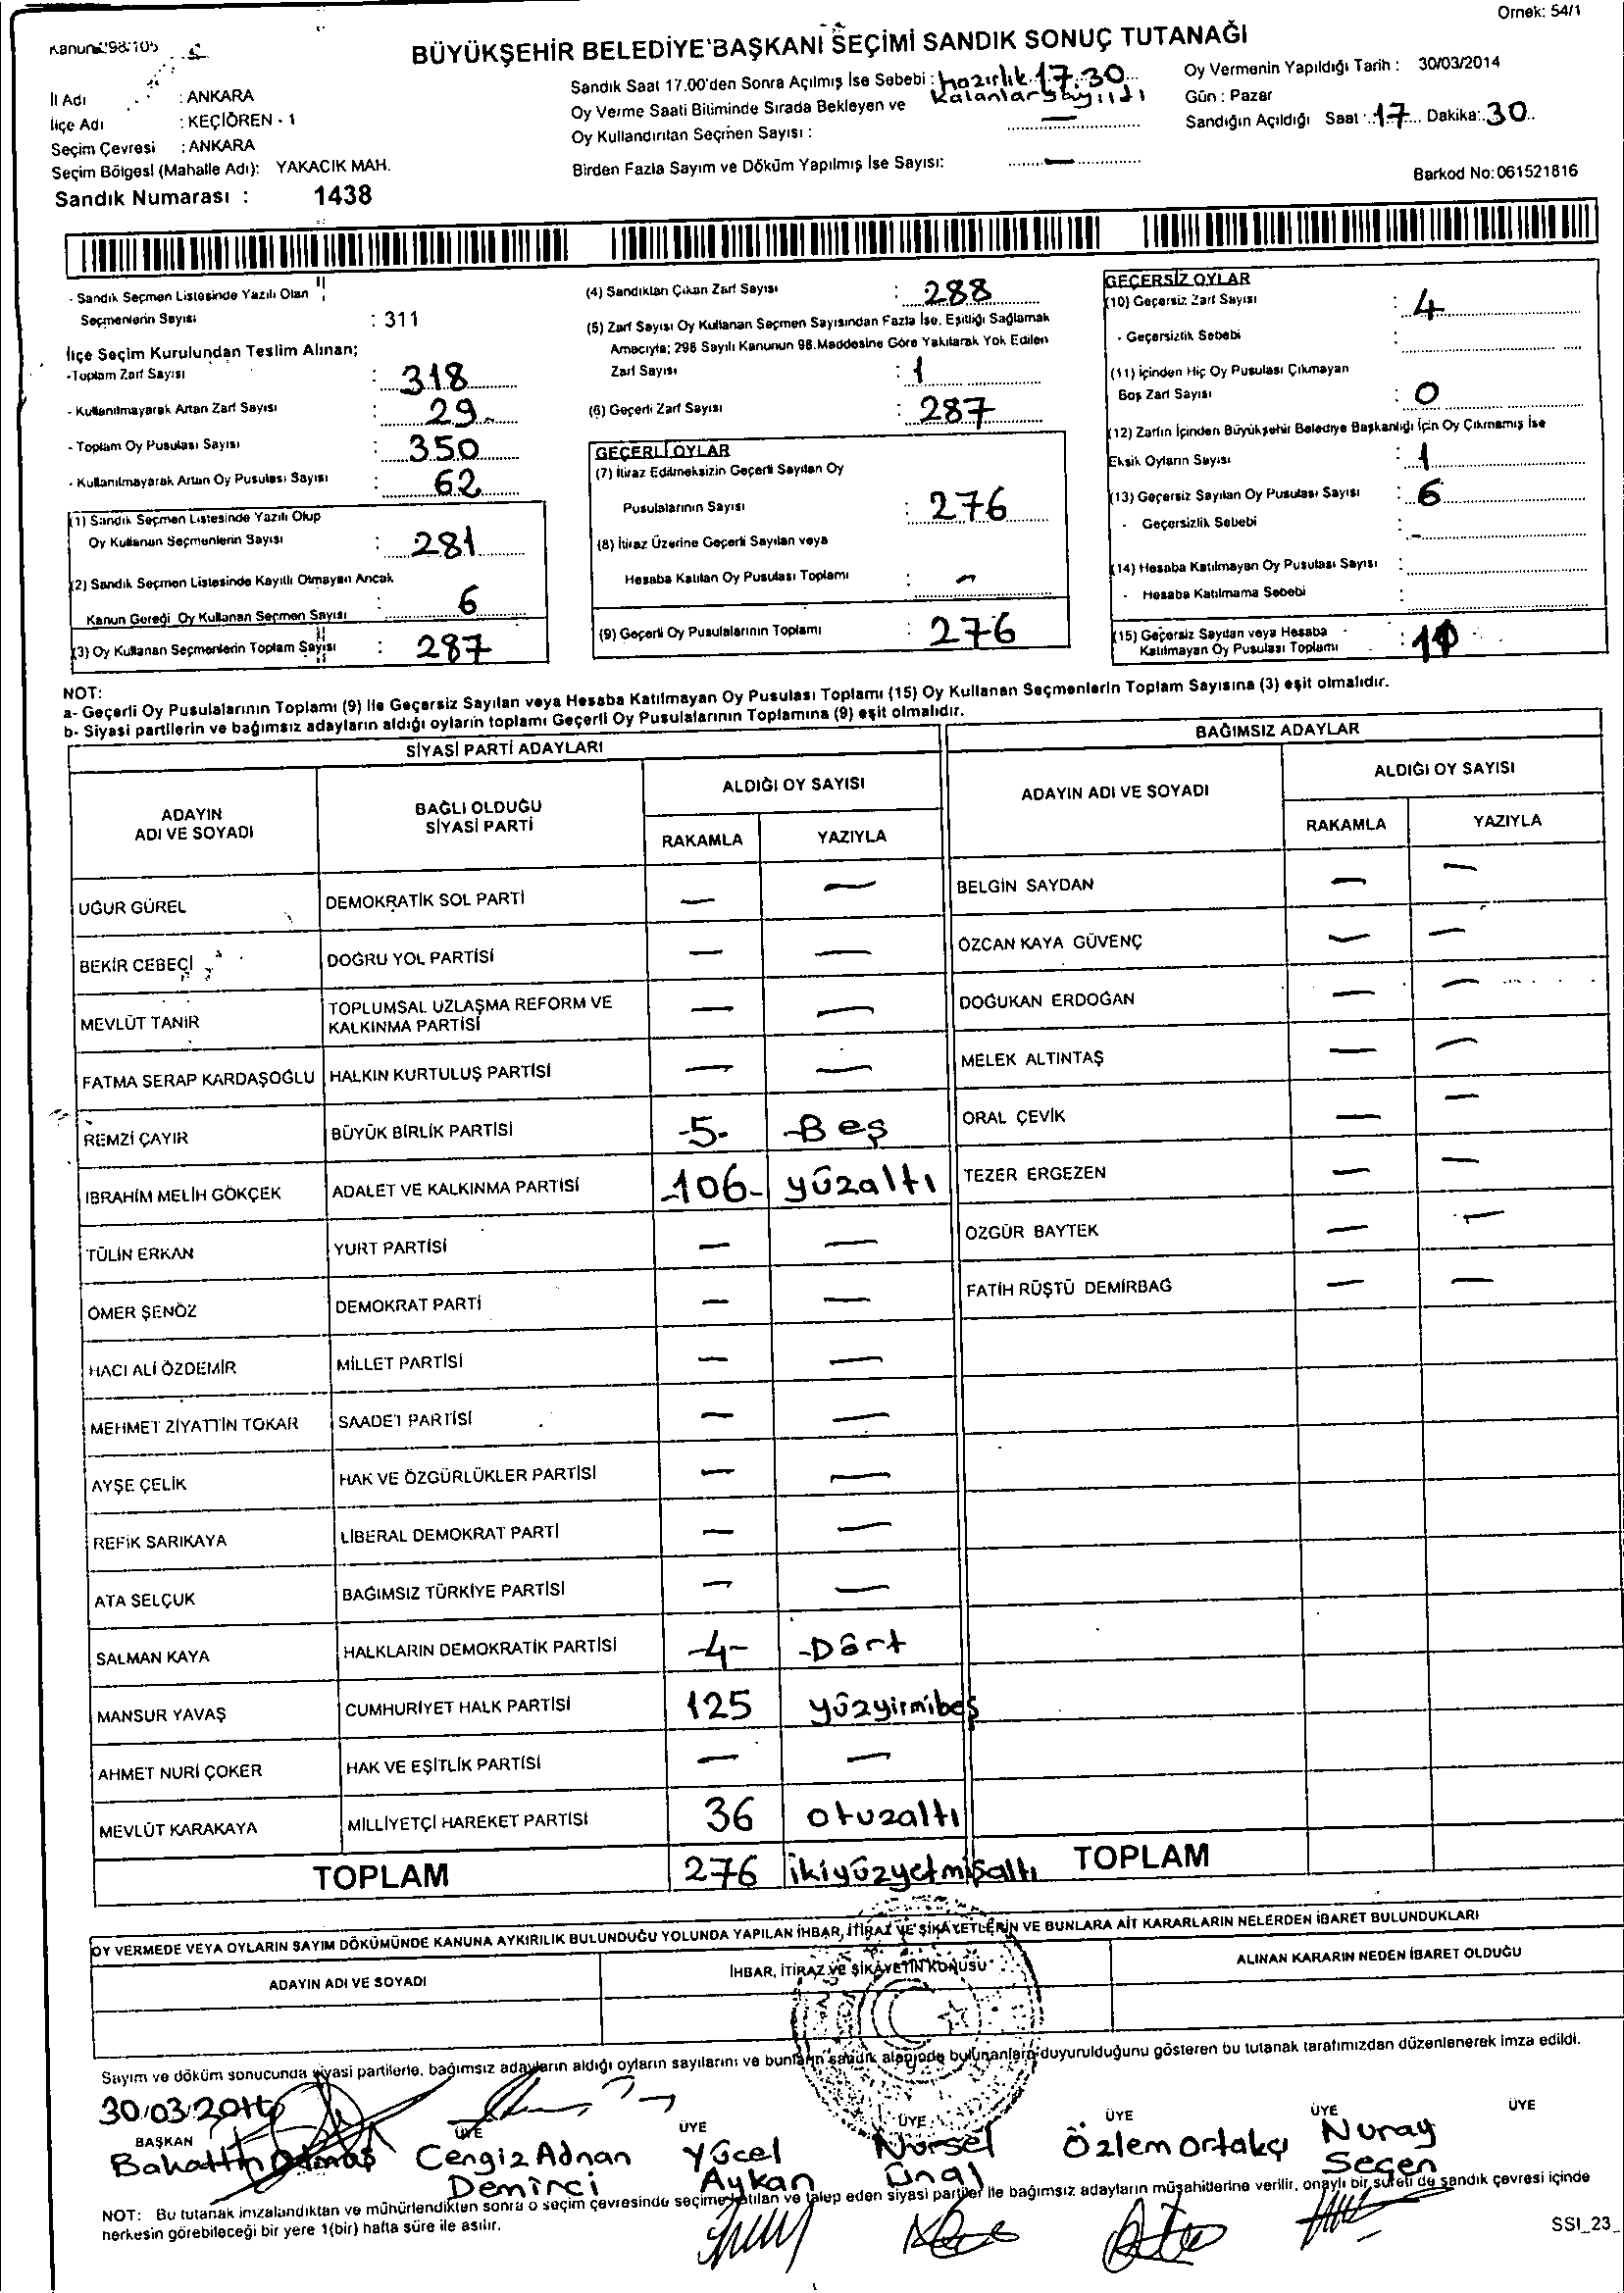 Örnek: 54/1
Kanun:298/105
BÜYÜKŞEHİR BELEDİYE BAŞKANI SEÇİMİ SANDIK SONUÇ TUTANAĞI
İl Adı : ANKARA
İlçe Adı : KEÇİÖREN - 1
Seçim Çevresi : ANKARA
Seçim Bölgesi (Mahalle Adı): YAKACIK MAH.
Sandık Numarası : 1438
Sandık Saat 17.00'den Sonra Açılmış İse Sebebi : hazırlık 17.30
Oy Verme Saati Bitiminde Sırada Bekleyen ve kalanlar sayıldı
Oy Kullandırılan Seçmen Sayısı : —
Birden Fazla Sayım ve Döküm Yapılmış İse Sayısı: —
Oy Vermenin Yapıldığı Tarih : 30/03/2014
Gün : Pazar
Sandığın Açıldığı Saat : 17 Dakika: 30
Barkod No: 061521816
- Sandık Seçmen Listesinde Yazılı Olan
Seçmenlerin Sayısı : 311
İlçe Seçim Kurulundan Teslim Alınan;
-Toplam Zarf Sayısı : 318
- Kullanılmayarak Artan Zarf Sayısı : 29
- Toplam Oy Pusulası Sayısı : 350
- Kullanılmayarak Artan Oy Pusulası Sayısı : 62
(1) Sandık Seçmen Listesinde Yazılı Olup
Oy Kullanan Seçmenlerin Sayısı : 281
(2) Sandık Seçmen Listesinde Kayıtlı Olmayan Ancak
Kanun Gereği Oy Kullanan Seçmen Sayısı : 6
(3) Oy Kullanan Seçmenlerin Toplam Sayısı : 287
(4) Sandıktan Çıkan Zarf Sayısı : 288
(5) Zarf Sayısı Oy Kullanan Seçmen Sayısından Fazla İse, Eşitliği Sağlamak
Amacıyla; 298 Sayılı Kanunun 98.Maddesine Göre Yakılarak Yok Edilen
Zarf Sayısı : 1
(6) Geçerli Zarf Sayısı : 287
GEÇERLİ OYLAR
(7) İtiraz Edilmeksizin Geçerli Sayılan Oy
Pusulalarının Sayısı : 276
(8) İtiraz Üzerine Geçerli Sayılan veya
Hesaba Katılan Oy Pusulası Toplamı : —
(9) Geçerli Oy Pusulalarının Toplamı : 276
GEÇERSİZ OYLAR
(10) Geçersiz Zarf Sayısı : 4
- Geçersizlik Sebebi :
(11) İçinden Hiç Oy Pusulası Çıkmayan
Boş Zarf Sayısı : 0
(12) Zarfın İçinden Büyükşehir Belediye Başkanlığı İçin Oy Çıkmamış İse
Eksik Oyların Sayısı : 1
(13) Geçersiz Sayılan Oy Pusulası Sayısı : 6
- Geçersizlik Sebebi : -
(14) Hesaba Katılmayan Oy Pusulası Sayısı :
- Hesaba Katılmama Sebebi :
(15) Geçersiz Sayılan veya Hesaba
Katılmayan Oy Pusulası Toplamı :
NOT:
a- Geçerli Oy Pusulalarının Toplamı (9) ile Geçersiz Sayılan veya Hesaba Katılmayan Oy Pusulası Toplamı (15) Oy Kullanan Seçmenlerin Toplam Sayısına (3) eşit olmalıdır.
b- Siyasi partilerin ve bağımsız adayların aldığı oyların toplamı Geçerli Oy Pusulalarının Toplamına (9) eşit olmalıdır.
SİYASİ PARTİ ADAYLARI
ADAYIN ADI VE SOYADI BAĞLI OLDUĞU SİYASİ PARTİ ALDIĞI OY SAYISI
RAKAMLA YAZIYLA
UĞUR GÜREL DEMOKRATİK SOL PARTİ — —
BEKİR CEBECİ DOĞRU YOL PARTİSİ — —
MEVLÜT TANIR TOPLUMSAL UZLAŞMA REFORM VE KALKINMA PARTİSİ — —
FATMA SERAP KARDAŞOĞLU HALKIN KURTULUŞ PARTİSİ — —
REMZİ ÇAYIR BÜYÜK BİRLİK PARTİSİ -5- -Beş
İBRAHİM MELİH GÖKÇEK ADALET VE KALKINMA PARTİSİ -106- yüzaltı
TÜLİN ERKAN YURT PARTİSİ — —
ÖMER ŞENÖZ DEMOKRAT PARTİ — —
HACI ALİ ÖZDEMİR MİLLET PARTİSİ — —
MEHMET ZİYATTİN TOKAR SAADET PARTİSİ — —
AYŞE ÇELİK HAK VE ÖZGÜRLÜKLER PARTİSİ — —
REFİK SARIKAYA LİBERAL DEMOKRAT PARTİ — —
ATA SELÇUK BAĞIMSIZ TÜRKİYE PARTİSİ — —
SALMAN KAYA HALKLARIN DEMOKRATİK PARTİSİ -4- -Dört
MANSUR YAVAŞ CUMHURİYET HALK PARTİSİ 125 yüzyirmibeş
AHMET NURİ ÇOKER HAK VE EŞİTLİK PARTİSİ — —
MEVLÜT KARAKAYA MİLLİYETÇİ HAREKET PARTİSİ 36 otuzaltı
TOPLAM 276 ikiyüzyetmişaltı
BAĞIMSIZ ADAYLAR
ADAYIN ADI VE SOYADI ALDIĞI OY SAYISI
RAKAMLA YAZIYLA
BELGİN SAYDAN — —
ÖZCAN KAYA GÜVENÇ — —
DOĞUKAN ERDOĞAN — —
MELEK ALTINTAŞ — —
ORAL ÇEVİK — —
TEZER ERGEZEN — —
ÖZGÜR BAYTEK — —
FATİH RÜŞTÜ DEMİRBAĞ — —
TOPLAM
OY VERMEDE VEYA OYLARIN SAYIM DÖKÜMÜNDE KANUNA AYKIRILIK BULUNDUĞU YOLUNDA YAPILAN İHBAR, İTİRAZ VE ŞİKAYETLERİN VE BUNLARA AİT KARARLARIN NELERDEN İBARET BULUNDUKLARI
ADAYIN ADI VE SOYADI İHBAR, İTİRAZ VE ŞİKAYETİN KONUSU ALINAN KARARIN NEDEN İBARET OLDUĞU
Sayım ve döküm sonucunda siyasi partilerle, bağımsız adayların aldığı oyların sayılarını ve bunların sandık alanında bulunanlara duyurulduğunu gösteren bu tutanak tarafımızdan düzenlenerek imza edildi.
30.03.2014
BAŞKAN ÜYE ÜYE ÜYE ÜYE ÜYE ÜYE
Bahattin
Cengiz Adnan Demirci
Yücel Aykan
Nursel Ünal
Özlem Ortakçı
Nuray Seçen
NOT: Bu tutanak imzalandıktan ve mühürlendikten sonra o seçim çevresinde seçime katılan ve talep eden siyasi partiler ile bağımsız adayların müşahitlerine verilir, onaylı bir sureti de sandık çevresi içinde
herkesin görebileceği bir yere 1(bir) hafta süre ile asılır.
SSI_23_